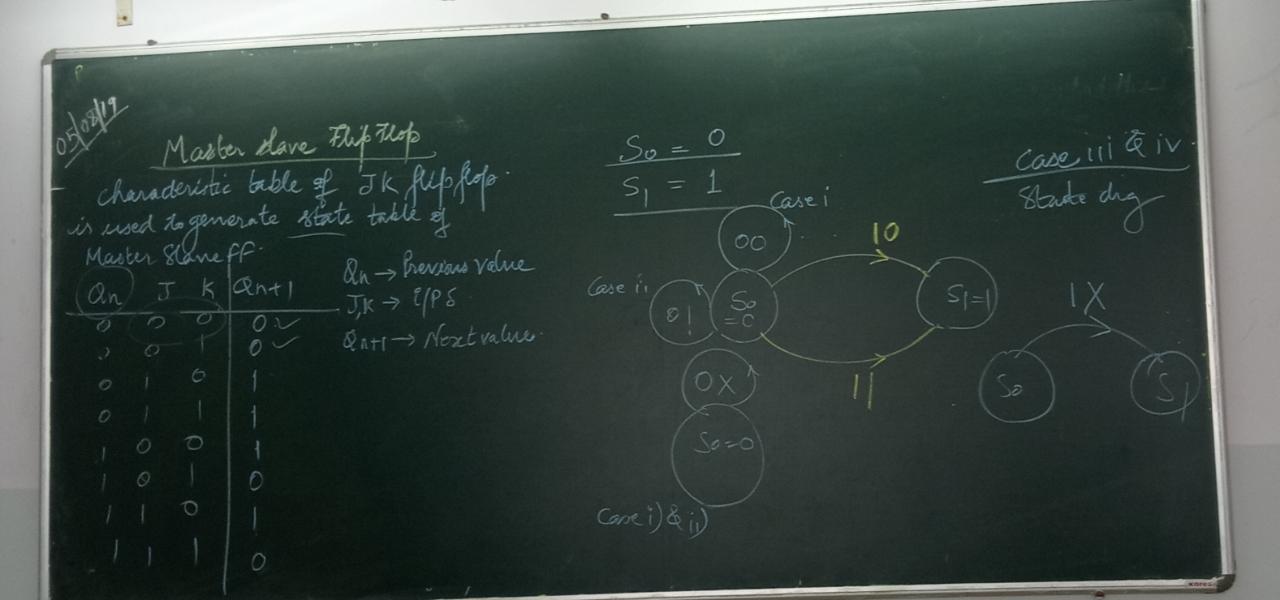 05/08/19
Master slave Flip Flop
characteristic table of JK flip flop.
is used to generate state table of
Master Slave ff.
Qn J K Qn+1
0 0 0 0 ✓
0 0 1 0 ✓
0 1 0 1
0 1 1 1
1 0 0 1
1 0 1 0
1 1 0 1
1 1 1 0
Qn → Previous value
J,K → i/Ps
Qn+1 → Next value.
S0 = 0
S1 = 1
Case i
00
Case ii
01
S0
=0
10
S1=1
11
0X
S0=0
Case i) & ii)
Case iii & iv
State dig
1X
S0
S1
kores